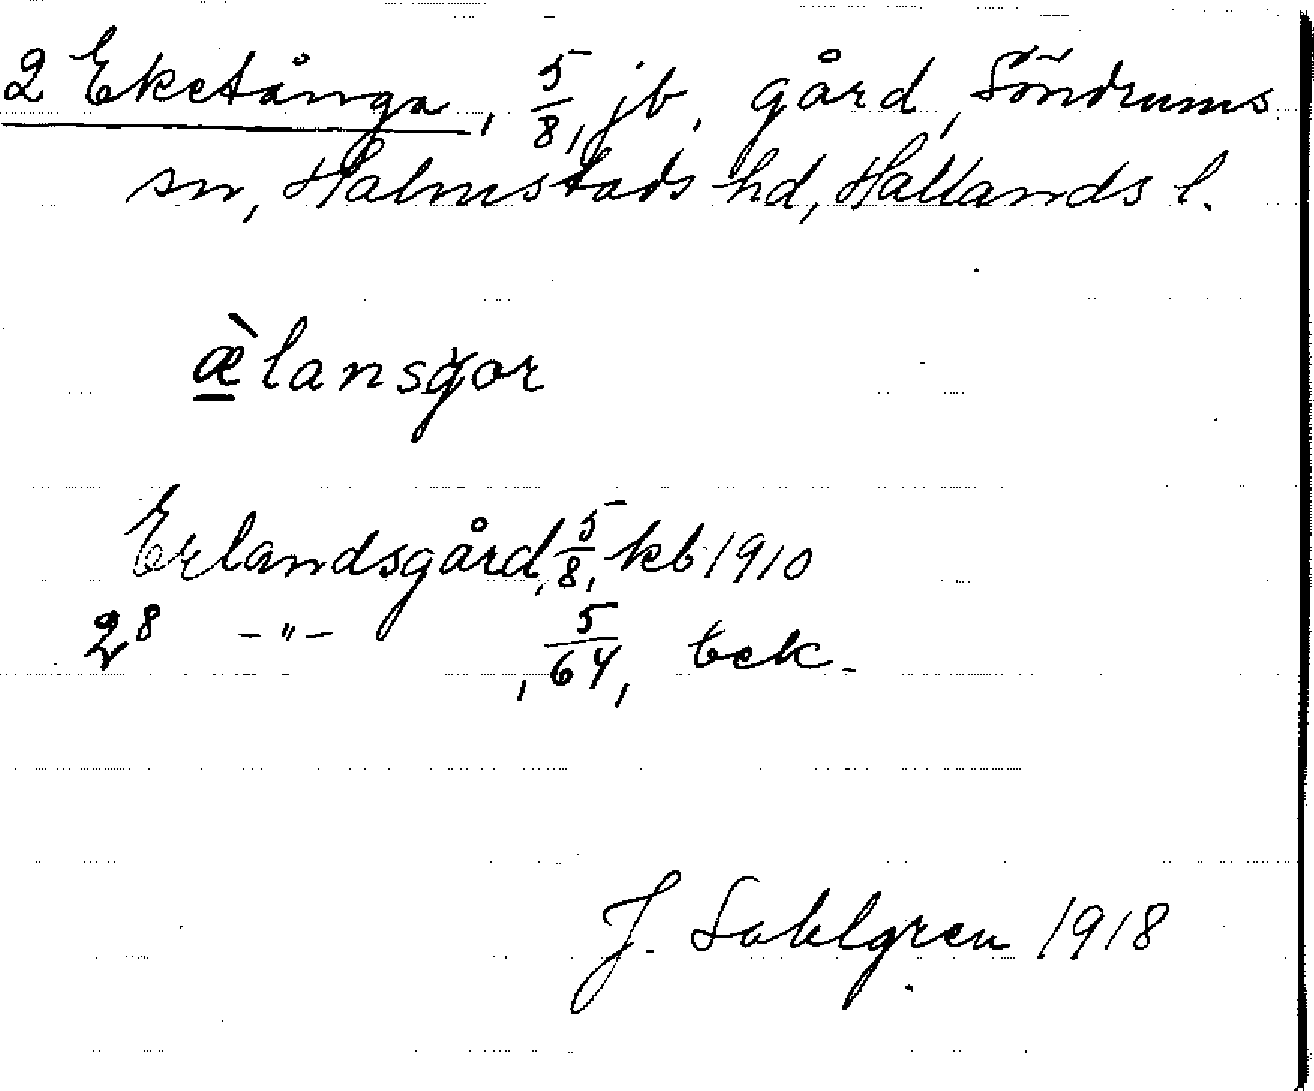 2 Eketånga, 5/8, jb, gård, Söndrums
sn, Halmstads hd, Hallands l.
æ̀lansgor
Erlandsgård, 5/8, kb 1910
2⁸ -"- , 5/64, bek.
J. Sahlgren 1918